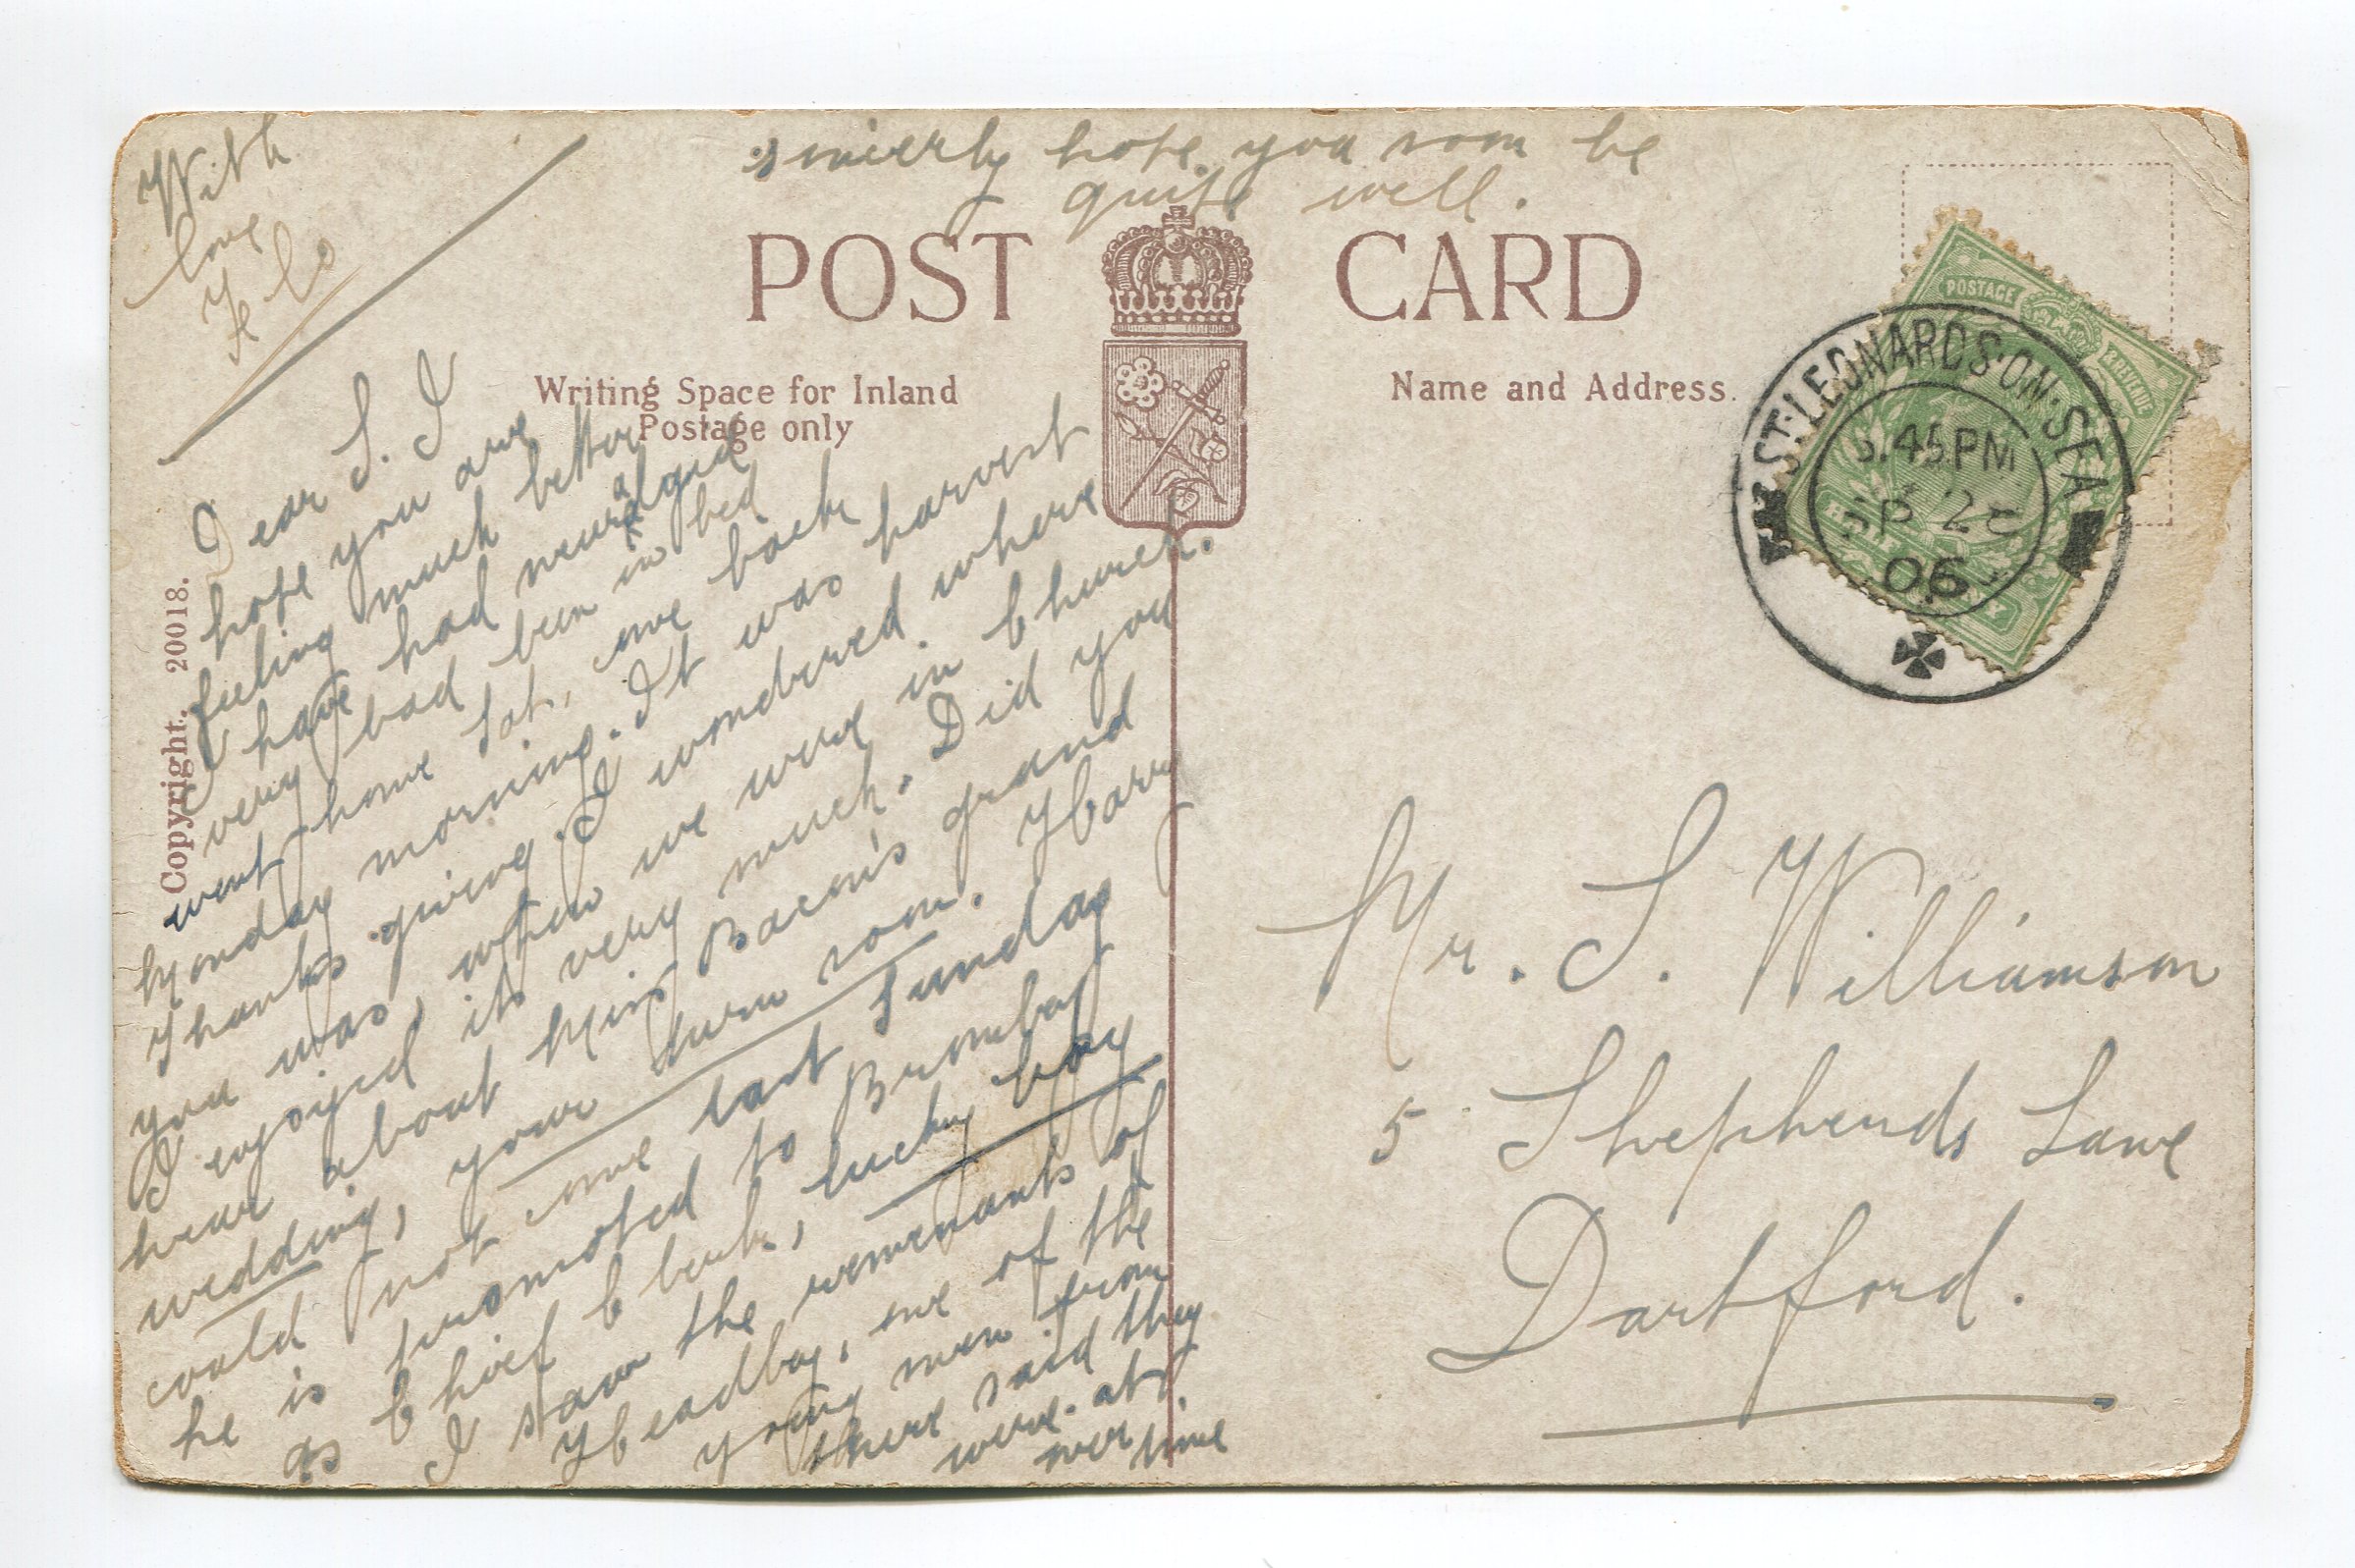 sincerly hope you soon be
quite well.
With
love
Flo
POST CARD
Writing Space for Inland
Postage only
Name and Address.
Copyright. 20018.
Dear S. I
hope you are
feeling much better
I have had neuralgia
very bad been in bed
went home Sat, came back
Monday morning. It was harvest
Thanks giving. I wondered where
you was, when we were in Church.
I enjoyed it very much. Did you
hear about Miss Bacon's grand
wedding, your turn soon. Harry
could not come last Sunday
he is promoted to Bromley
as Chief Clerk, lucky boy
I saw the remenants of
Headboy, one of the
young men from
there said they
were at
over time
ST. LEONARDS-ON-SEA
.45 PM
SP 2
06
POSTAGE
& REVENUE
HALF PENNY
Mr. S. Williamson
5 Shepherds Lane
Dartford.